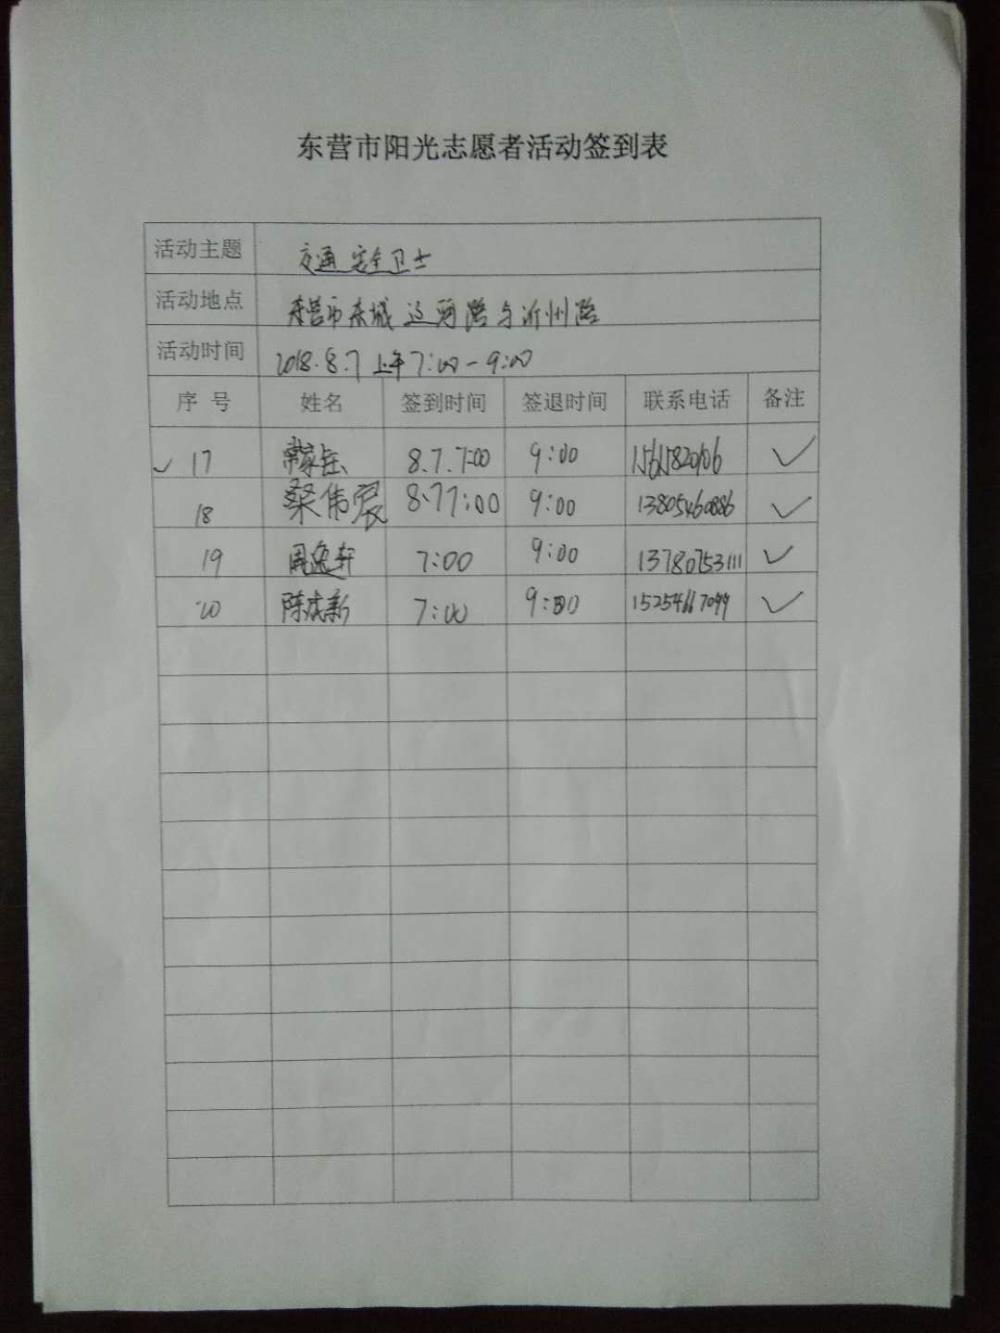 东营市阳光志愿者活动签到表
活动主题 交通安全卫士
活动地点 东营市东城辽河路与沂州路
活动时间 2018.8.7 上午7:00-9:00
序号 姓名 签到时间 签退时间 联系电话 备注
✓ 17 8.7.7:00 9:00 ✓
18 桑伟宸 8.7 7:00 9:00 13805460886 ✓
19 周逸轩 7:00 9:00 13780753111 ✓
20 陈成新 7:00 9:00 15254667099 ✓